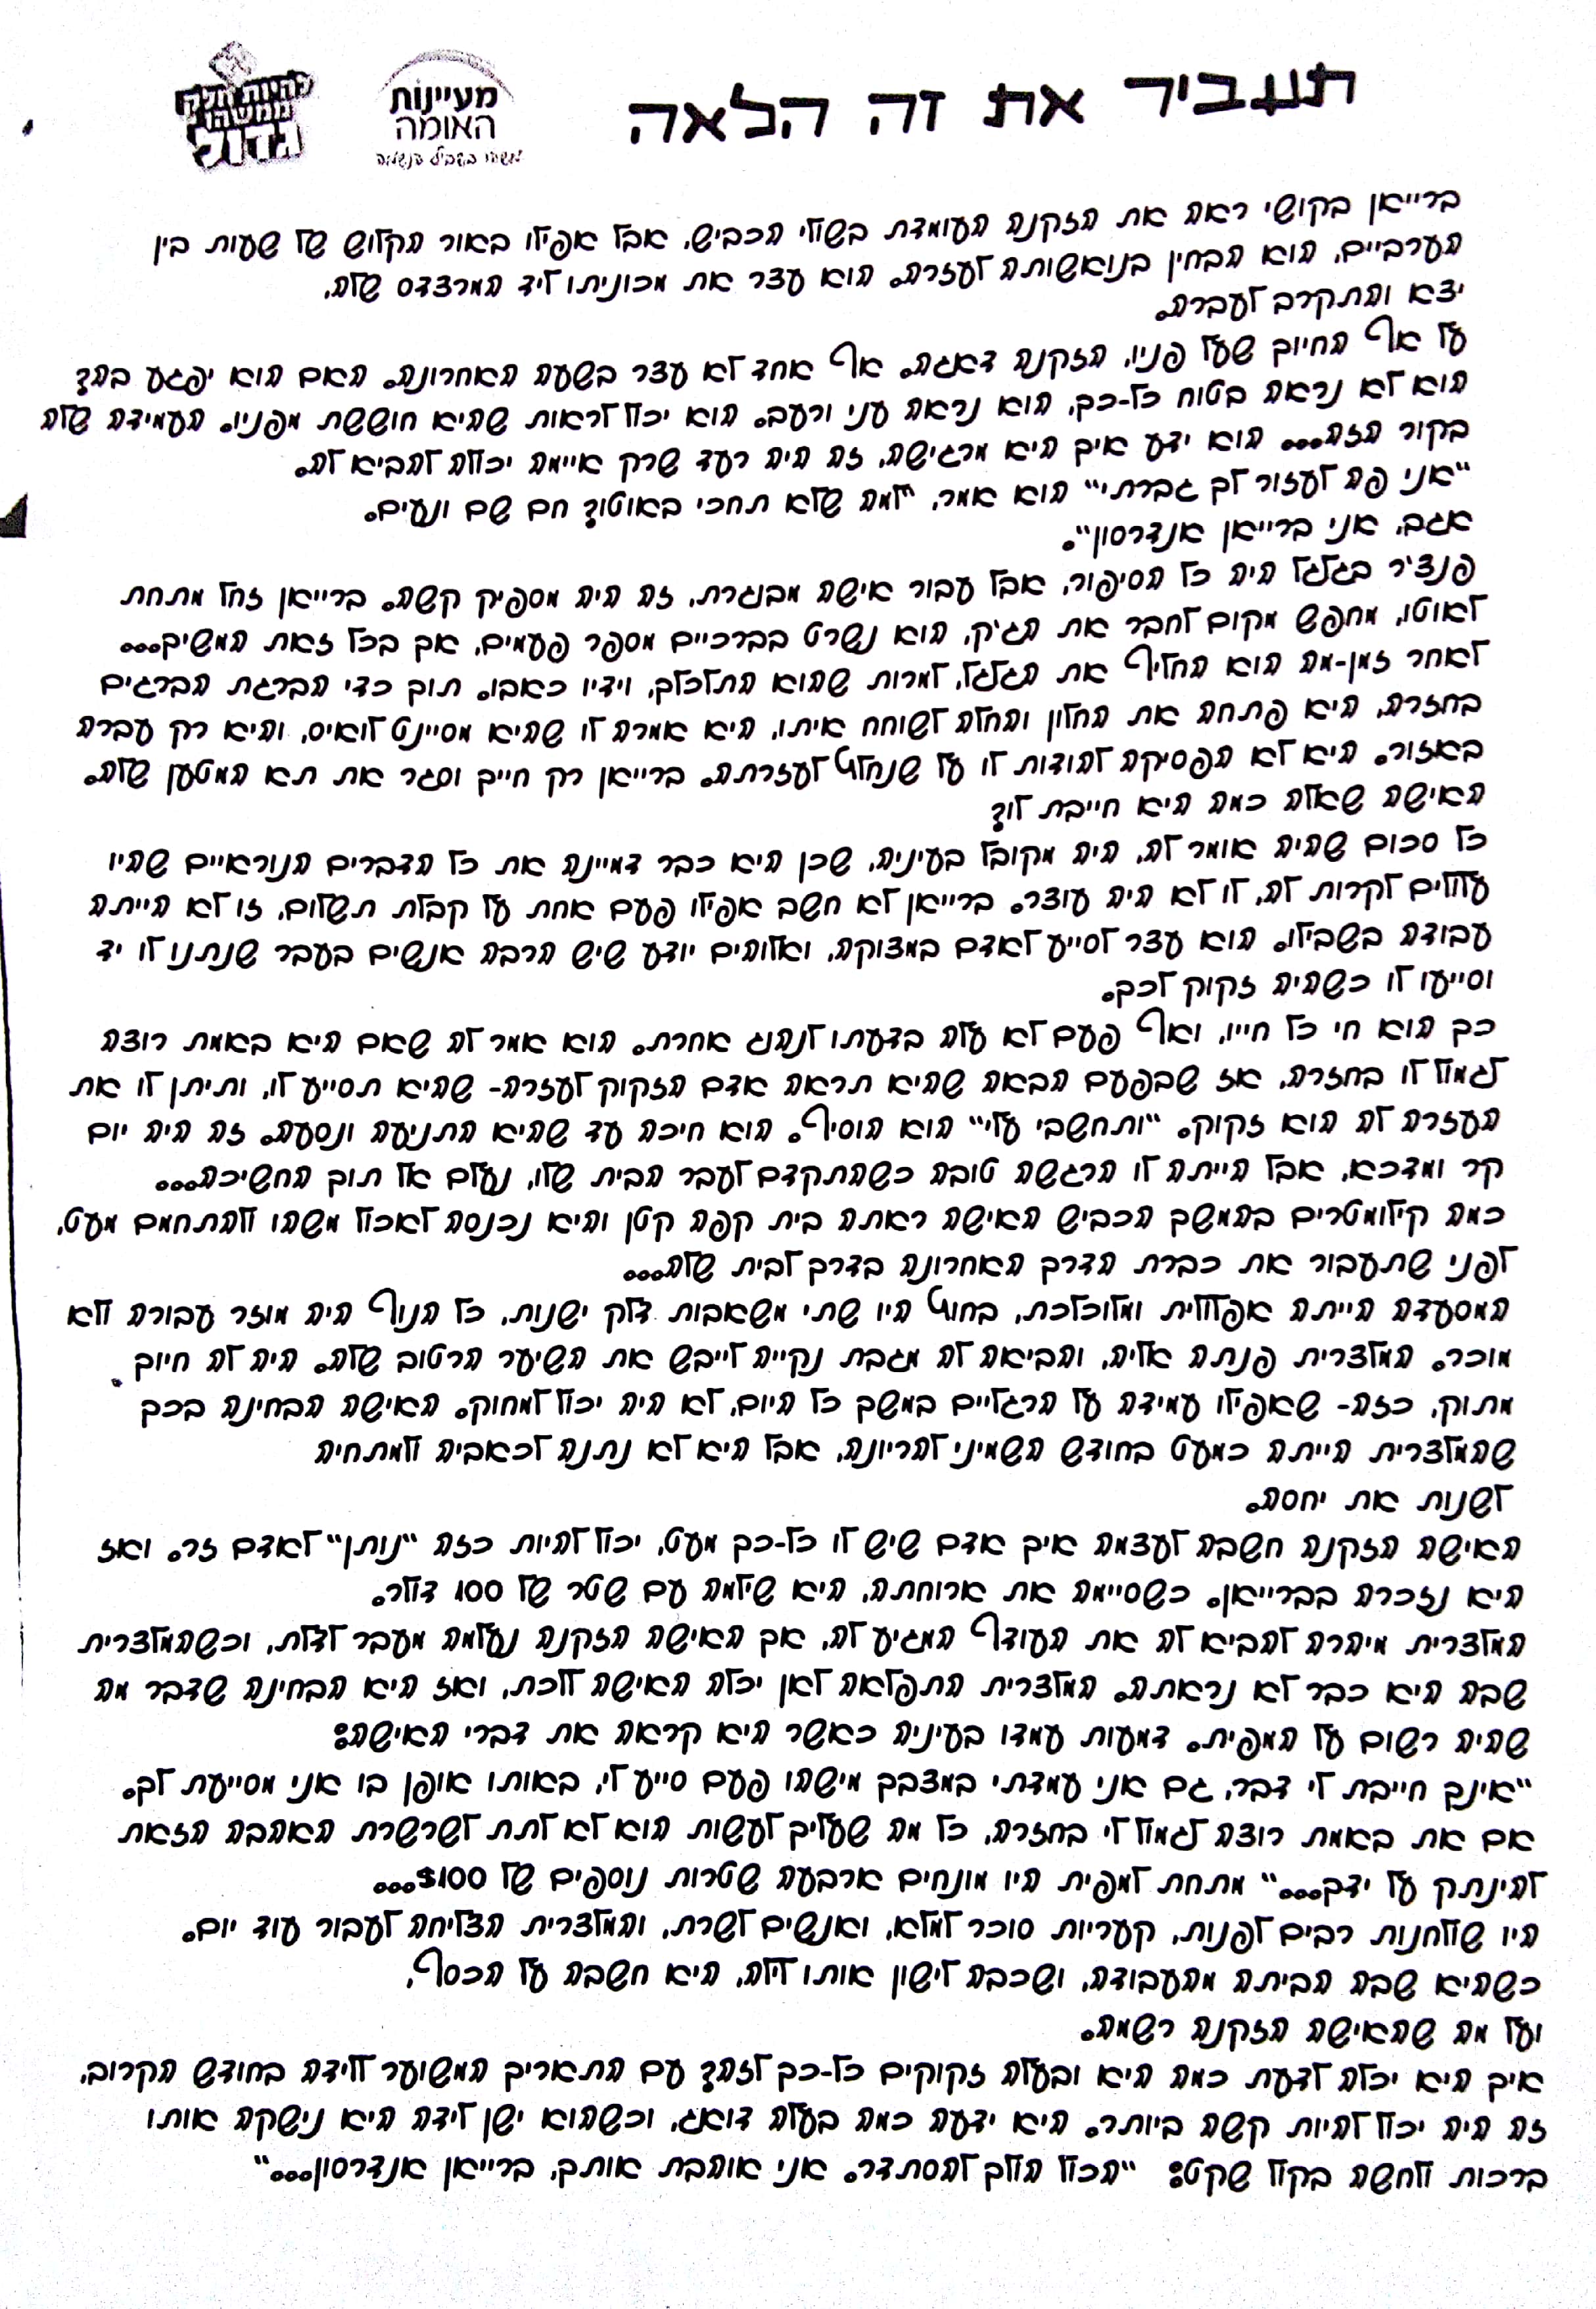 תעביר את זה הלאה
מעיינות
האומה
משהו בשביל הנשמה
להיות חלק
ממשהו
גדול
ברייאן בקושי ראה את הזקנה העומדת בשולי הכביש, אבל אפילו באור הקלוש של שעות בין
הערביים, הוא הבחין בנואשותה לעזרה. הוא עצר את מכוניתו ליד המרצדס שלה,
יצא והתקרב לעברה.
על אף החיוך שעל פניו, הזקנה דאגה. אף אחד לא עצר בשעה האחרונה. האם הוא יפגע בה?
הוא לא נראה בטוח כל-כך, הוא נראה עני ורעב. הוא יכול לראות שהיא חוששת מפניו. העמידה שלה
בקור הזה... הוא ידע איך היא מרגישה, זה היה רעד שרק איימה יכולה להביא לה.
"אני פה לעזור לך גברתי" הוא אמר, "למה שלא תחכי באוטו? חם שם ונעים.
אגב, אני ברייאן אנדרסון".
פנצ'ר בגלגל היה כל הסיפור, אבל עבור אישה מבוגרת, זה היה מספיק קשה. ברייאן זחל מתחת
לאוטו, מחפש מקום לחבר את הג'ק, הוא נשרט בברכיים מספר פעמים, אך בכל זאת המשיך...
לאחר זמן-מה הוא החליף את הגלגל, למרות שהוא התלכלך, וידיו כאבו. תוך כדי הברגת הברגים
בחזרה, היא פתחה את החלון והחלה לשוחח איתו, היא אמרה לו שהיא מסיינט לואיס, והיא רק עברה
באזור. היא לא הפסיקה להודות לו על שנחלץ לעזרתה. ברייאן רק חייך וסגר את תא המטען שלה.
האישה שאלה כמה היא חייבת לו?
כל סכום שהיה אומר לה, היה מקובל בעיניה, שכן היא כבר דמיינה את כל הדברים הנוראיים שהיו
עלולים לקרות לה, לו לא היה עוצר. ברייאן לא חשב אפילו פעם אחת על קבלת תשלום, זו לא הייתה
עבודה בשבילו. הוא עצר לסייע לאדם במצוקה, ואלוהים יודע שיש הרבה אנשים בעבר שנתנו לו יד
וסייעו לו כשהיה זקוק לכך.
כך הוא חי כל חייו, ואף פעם לא עלה בדעתו לנהוג אחרת. הוא אמר לה שאם היא באמת רוצה
לגמול לו בחזרה, אז שבפעם הבאה שהיא תראה אדם הזקוק לעזרה- שהיא תסייע לו, ותיתן לו את
העזרה לה הוא זקוק. "ותחשבי עלי" הוא הוסיף. הוא חיכה עד שהיא התניעה ונסעה. זה היה יום
קר ומדכא, אבל הייתה לו הרגשה טובה כשהתקדם לעבר הבית שלו, נעלם אל תוך החשיכה...
כמה קילומטרים בהמשך הכביש האישה ראתה בית קפה קטן והיא נכנסה לאכול משהו ולהתחמם מעט,
לפני שתעבור את כברת הדרך האחרונה בדרך לבית שלה...
המסעדה הייתה אפלולית ומלוכלכת, בחוץ היו שתי משאבות דלק ישנות, כל הנוף היה מוזר עבורה ולא
מוכר. המלצרית פנתה אליה, והביאה לה מגבת נקייה לייבש את השיער הרטוב שלה. היה לה חיוך
מתוק, כזה- שאפילו עמידה על הרגליים במשך כל היום, לא היה יכול למחוק. האישה הבחינה בכך
שהמלצרית הייתה כמעט בחודש השמיני להריונה, אבל היא לא נתנה לכאביה ולמתחיה
לשנות את יחסה.
האישה הזקנה חשבה לעצמה איך אדם שיש לו כל-כך מעט, יכול להיות כזה "נותן" לאדם זר. ואז
היא נזכרה בברייאן. כשסיימה את ארוחתה, היא שילמה עם שטר של 100 דולר.
המלצרית מיהרה להביא לה את העודף המגיע לה, אך האישה הזקנה נעלמה מעבר לדלת, וכשהמלצרית
שבה היא כבר לא נראתה. המלצרית התפלאה לאן יכלה האישה ללכת, ואז היא הבחינה שדבר מה
שהיה רשום על המפית. דמעות עמדו בעיניה כאשר היא קראה את דברי האישה:
"אינך חייבת לי דבר, גם אני עמדתי במצבך מישהו פעם סייע לי, באותו אופן בו אני מסייעת לך.
אם את באמת רוצה לגמול לי בחזרה, כל מה שעליך לעשות הוא לא לתת לשרשרת האהבה הזאת
להינתק על ידך..." מתחת למפית היו מונחים ארבעה שטרות נוספים של 100$...
היו שולחנות רבים לפנות, קעריות סוכר למלא, ואנשים לשרת, והמלצרית הצליחה לעבור עוד יום.
כשהיא שבה הביתה מהעבודה, ושכבה לישון אותו לילה, היא חשבה על הכסף,
ועל מה שהאישה הזקנה רשמה.
איך היא יכלה לדעת כמה היא ובעלה זקוקים כל-כך לזה? עם התאריך המשוער ללידה בחודש הקרוב,
זה היה יכול להיות קשה ביותר. היא ידעה כמה בעלה דואג, וכשהוא ישן לידה היא נישקה אותו
ברכות ולחשה בקול שקט: "הכול הולך להסתדר. אני אוהבת אותך, ברייאן אנדרסון..."